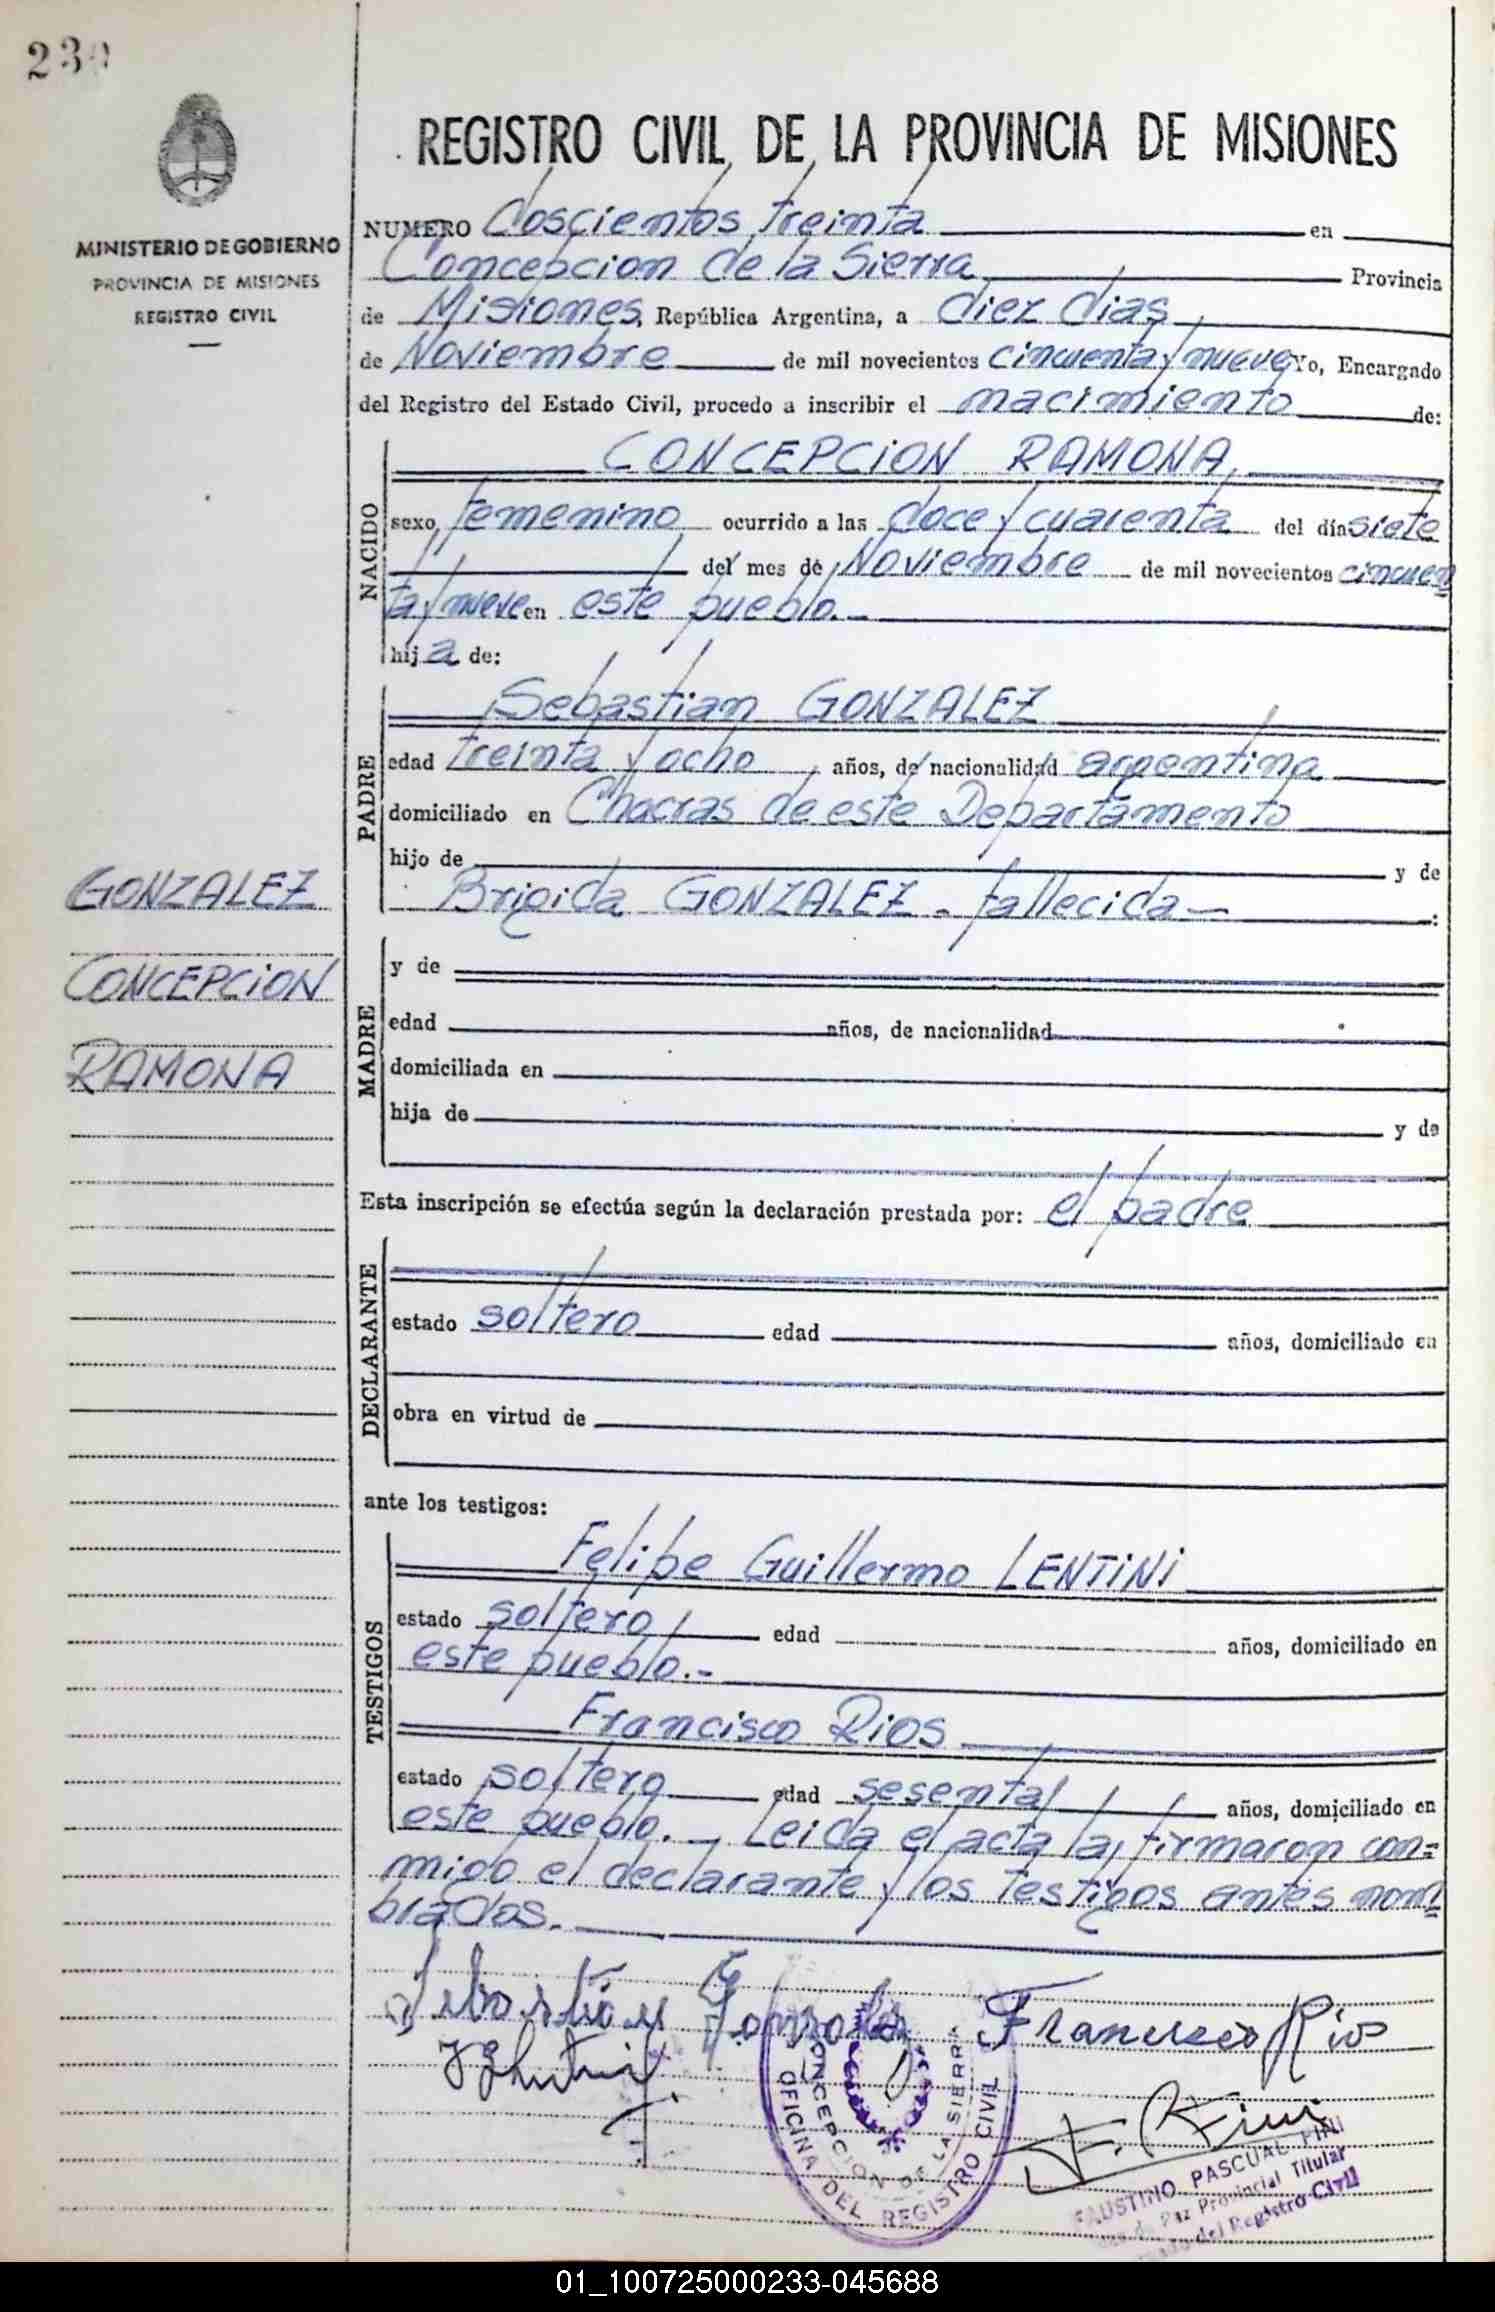 230
REGISTRO CIVIL DE LA PROVINCIA DE MISIONES
MINISTERIO DE GOBIERNO
PROVINCIA DE MISIONES
REGISTRO CIVIL
NUMERO Doscientos treinta en
Concepcion de la Sierra Provincia
de Misiones, República Argentina, a diez dias
de Noviembre de mil novecientos cincuenta y nueve Yo, Encargado
del Registro del Estado Civil, procedo a inscribir el nacimiento de:
NACIDO
CONCEPCION RAMONA,
sexo, femenino ocurrido a las doce y cuarenta del día siete
del mes de Noviembre de mil novecientos cincuen
ta y nueve en este pueblo.-
hija de:
PADRE
Sebastian GONZALEZ
edad treinta y ocho años, de nacionalidad argentina
domiciliado en Chacras de este Departamento
hijo de y de
Brigida GONZALEZ - fallecida -
GONZALEZ
CONCEPCION
RAMONA
MADRE
y de
edad años, de nacionalidad
domiciliada en
hija de y de
Esta inscripción se efectúa según la declaración prestada por: el padre
DECLARANTE
estado soltero edad años, domiciliado en
obra en virtud de
ante los testigos:
TESTIGOS
Felipe Guillermo LENTINI
estado soltero edad años, domiciliado en
este pueblo.-
Francisco Rios
estado soltero edad sesenta años, domiciliado en
este pueblo. - Leida el acta la firmaron con=
migo el declarante y los testigos antes nom
brados.
Sebastian Gonzalez Francisco Rios
F. P. Fini
CONCEPCION DE LA SIERRA
OFICINA DEL REGISTRO CIVIL
FAUSTINO PASCUAL FINI
de Paz Provincial Titular
del Registro Civil
01_100725000233-045688